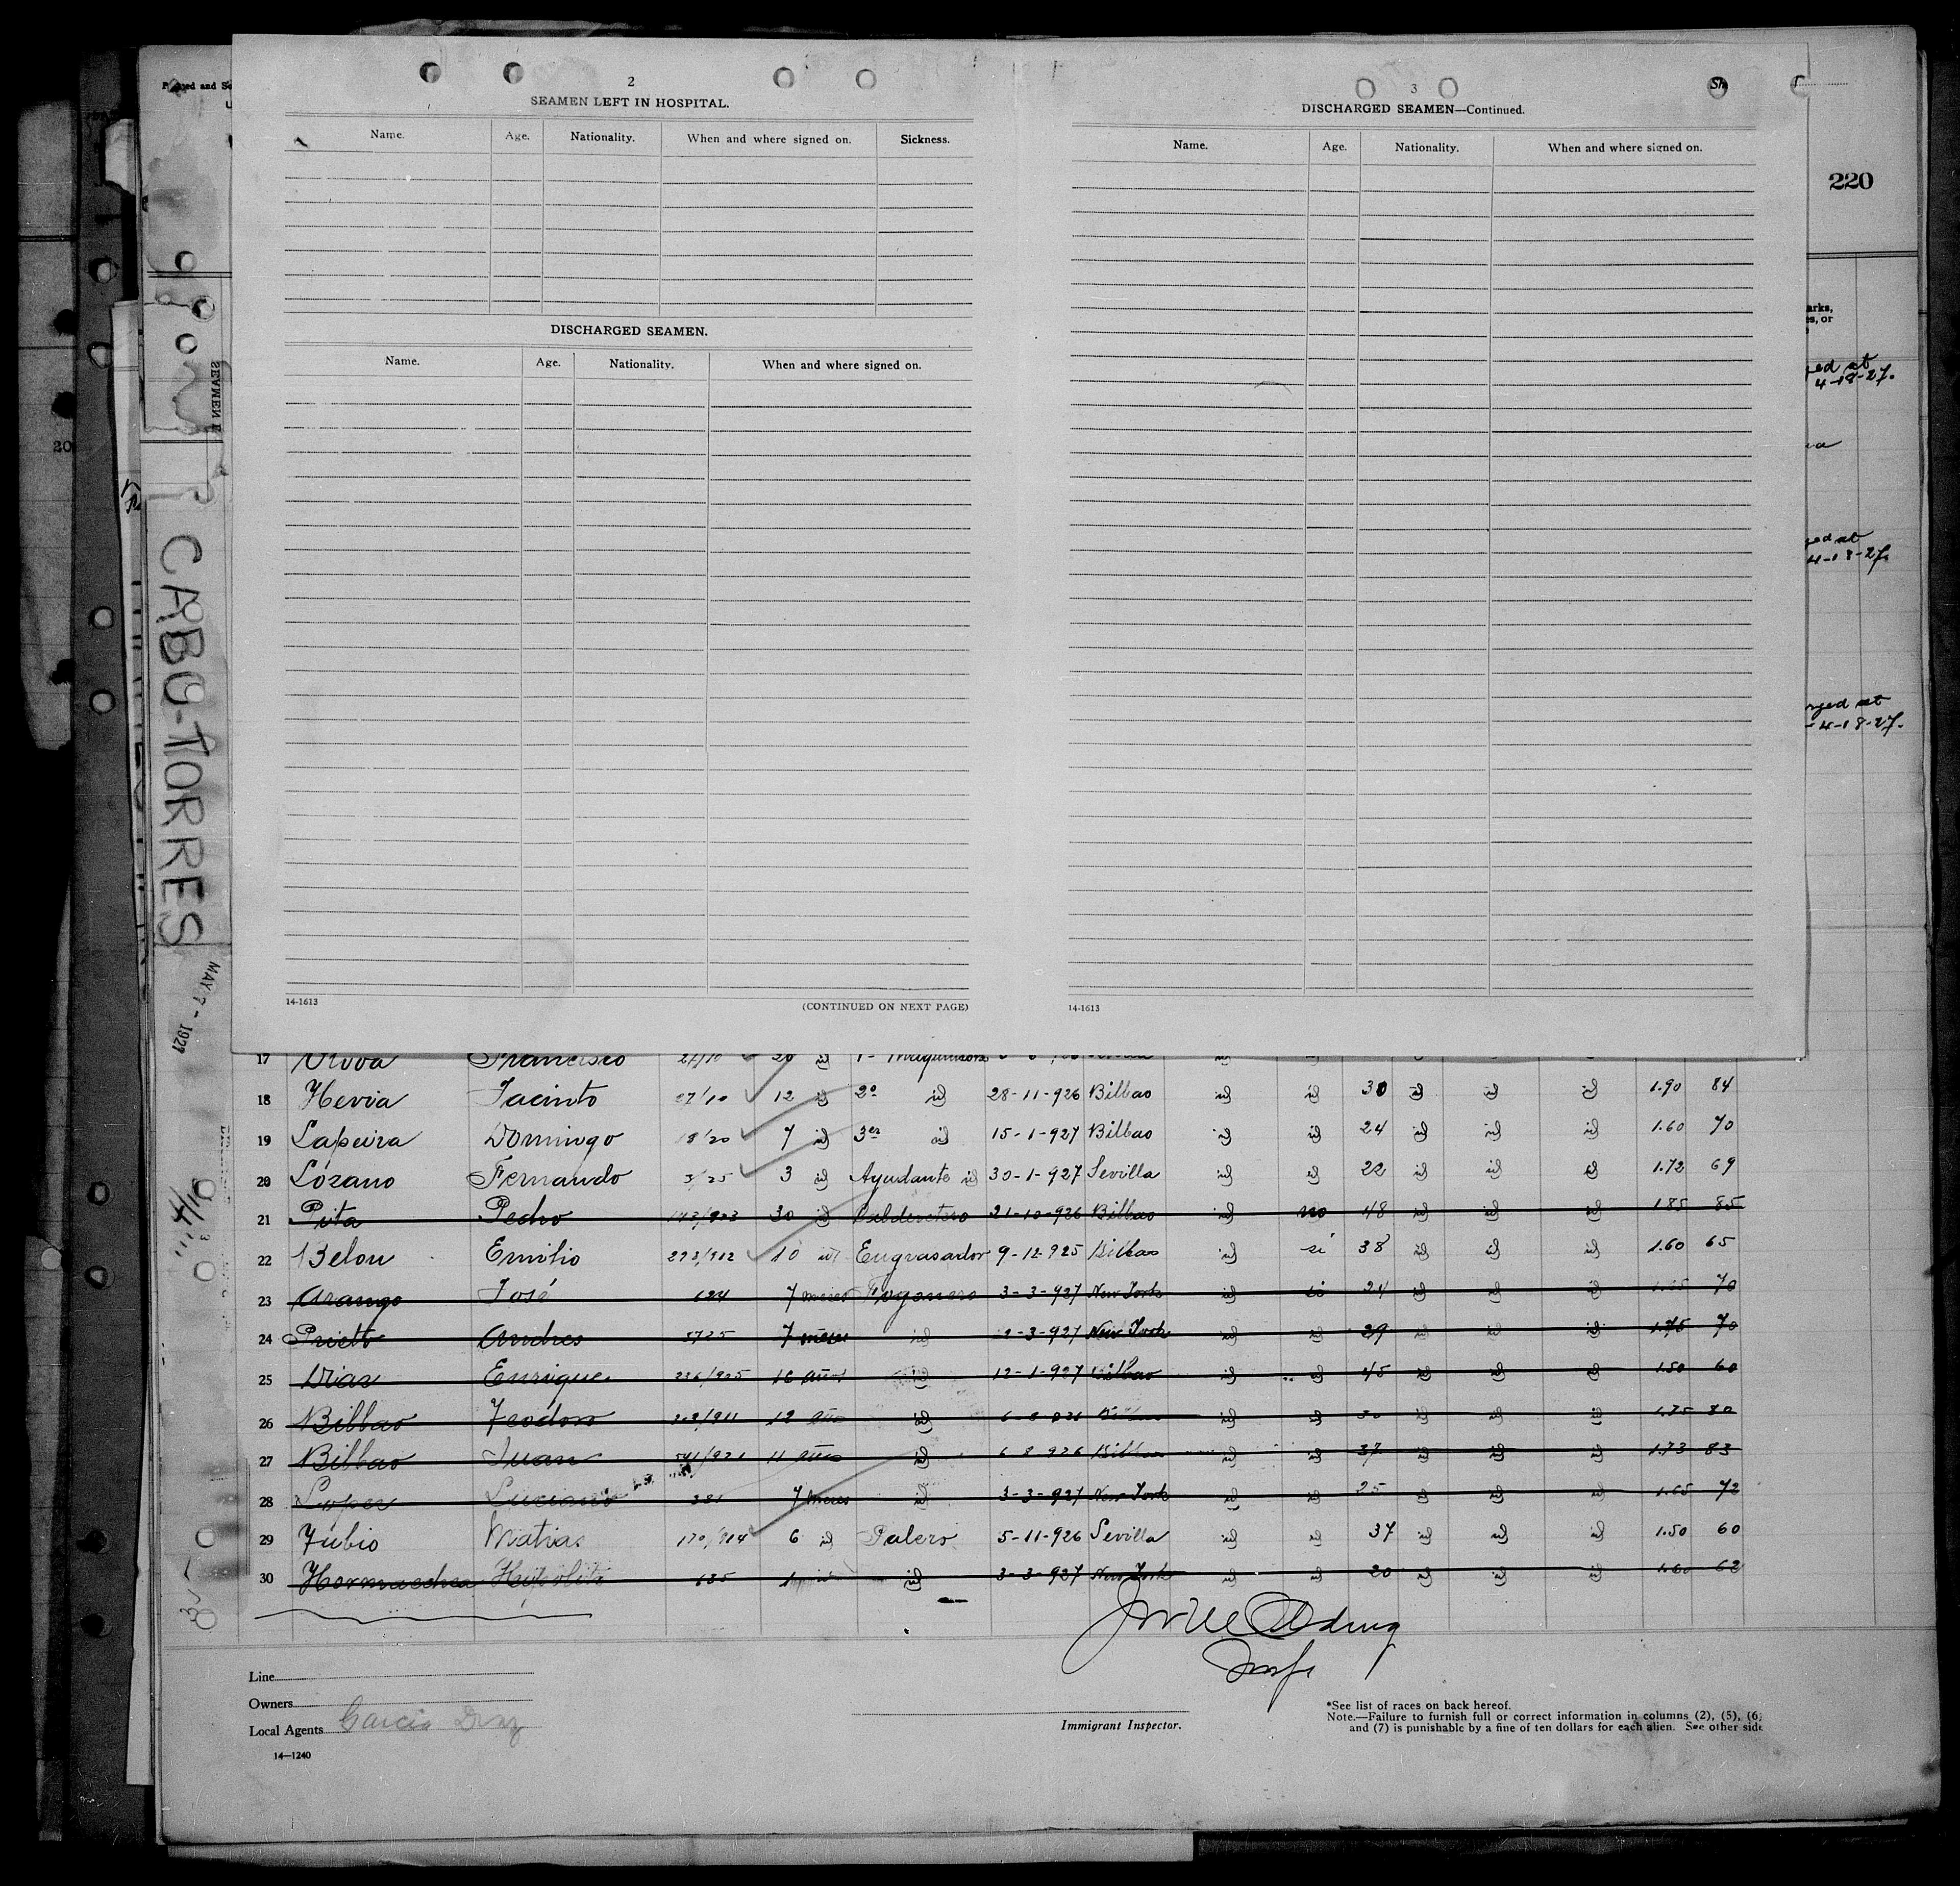 220
2
SEAMEN LEFT IN HOSPITAL.
Name. Age. Nationality. When and where signed on. Sickness.
DISCHARGED SEAMEN.
Name. Age. Nationality. When and where signed on.
14-1613 (CONTINUED ON NEXT PAGE)
3
DISCHARGED SEAMEN—Continued.
Name. Age. Nationality. When and where signed on.
14-1613
arks,
es, or
ged at
4-18-27.
ged at
4-18-27.
rged at
-4-18-27.
CABO-TORRES
MAY 7 - 1927
SEAMEN
17 Francisco 27/10 20 id
18 Hevia Jacinto 27/10 12 id 2º id 28-11-926 Bilbao id id 30 id id id 1.90 84
19 Lapeira Domingo 18/20 7 id 3er id 15-1-927 Bilbao id id 24 id id id 1.60 70
20 Lózano Fernando 3/25 3 id Ayudante id 30-1-927 Sevilla id id 22 id id id 1.72 69
21 Pita Pedro 30 id 21-10-926 Bilbao id no 48 id id id 1.85 85
22 Belon Emilio 293/912 10 id Engrasador 9-12-925 Bilbao id si 38 id id id 1.60 65
23 Arango José 624 7 meses Fogonero 3-3-927 New York id si 24 id id id 70
24 Prieto Andres 5725 7 meses id 3-927 New York id id 29 id id id 1.75 70
25 Dias Enrique 226/925 16 años id 12-1-927 Bilbao id id 45 id id id 1.50 60
26 Bilbao Teodoro 12 id id id id id id 1.75 80
27 Bilbao Juan 541/921 11 años id 6-8-926 Bilbao id id 37 id id id 1.73 83
28 Lopez Luciano 381 7 meses id 3-3-927 New York id id 25 id id id 1.65 72
29 Matias 170/914 6 id Palero 5-11-926 Sevilla id id 37 id id id 1.50 60
30 Hormaechea Hipolito 635 id 3-3-927 New York id id 20 id id id 1.60 62
Line
Owners
Local Agents Garcia Diaz
14—1240
Immigrant Inspector.
*See list of races on back hereof.
Note.—Failure to furnish full or correct information in columns (2), (5), (6)
and (7) is punishable by a fine of ten dollars for each alien. See other side